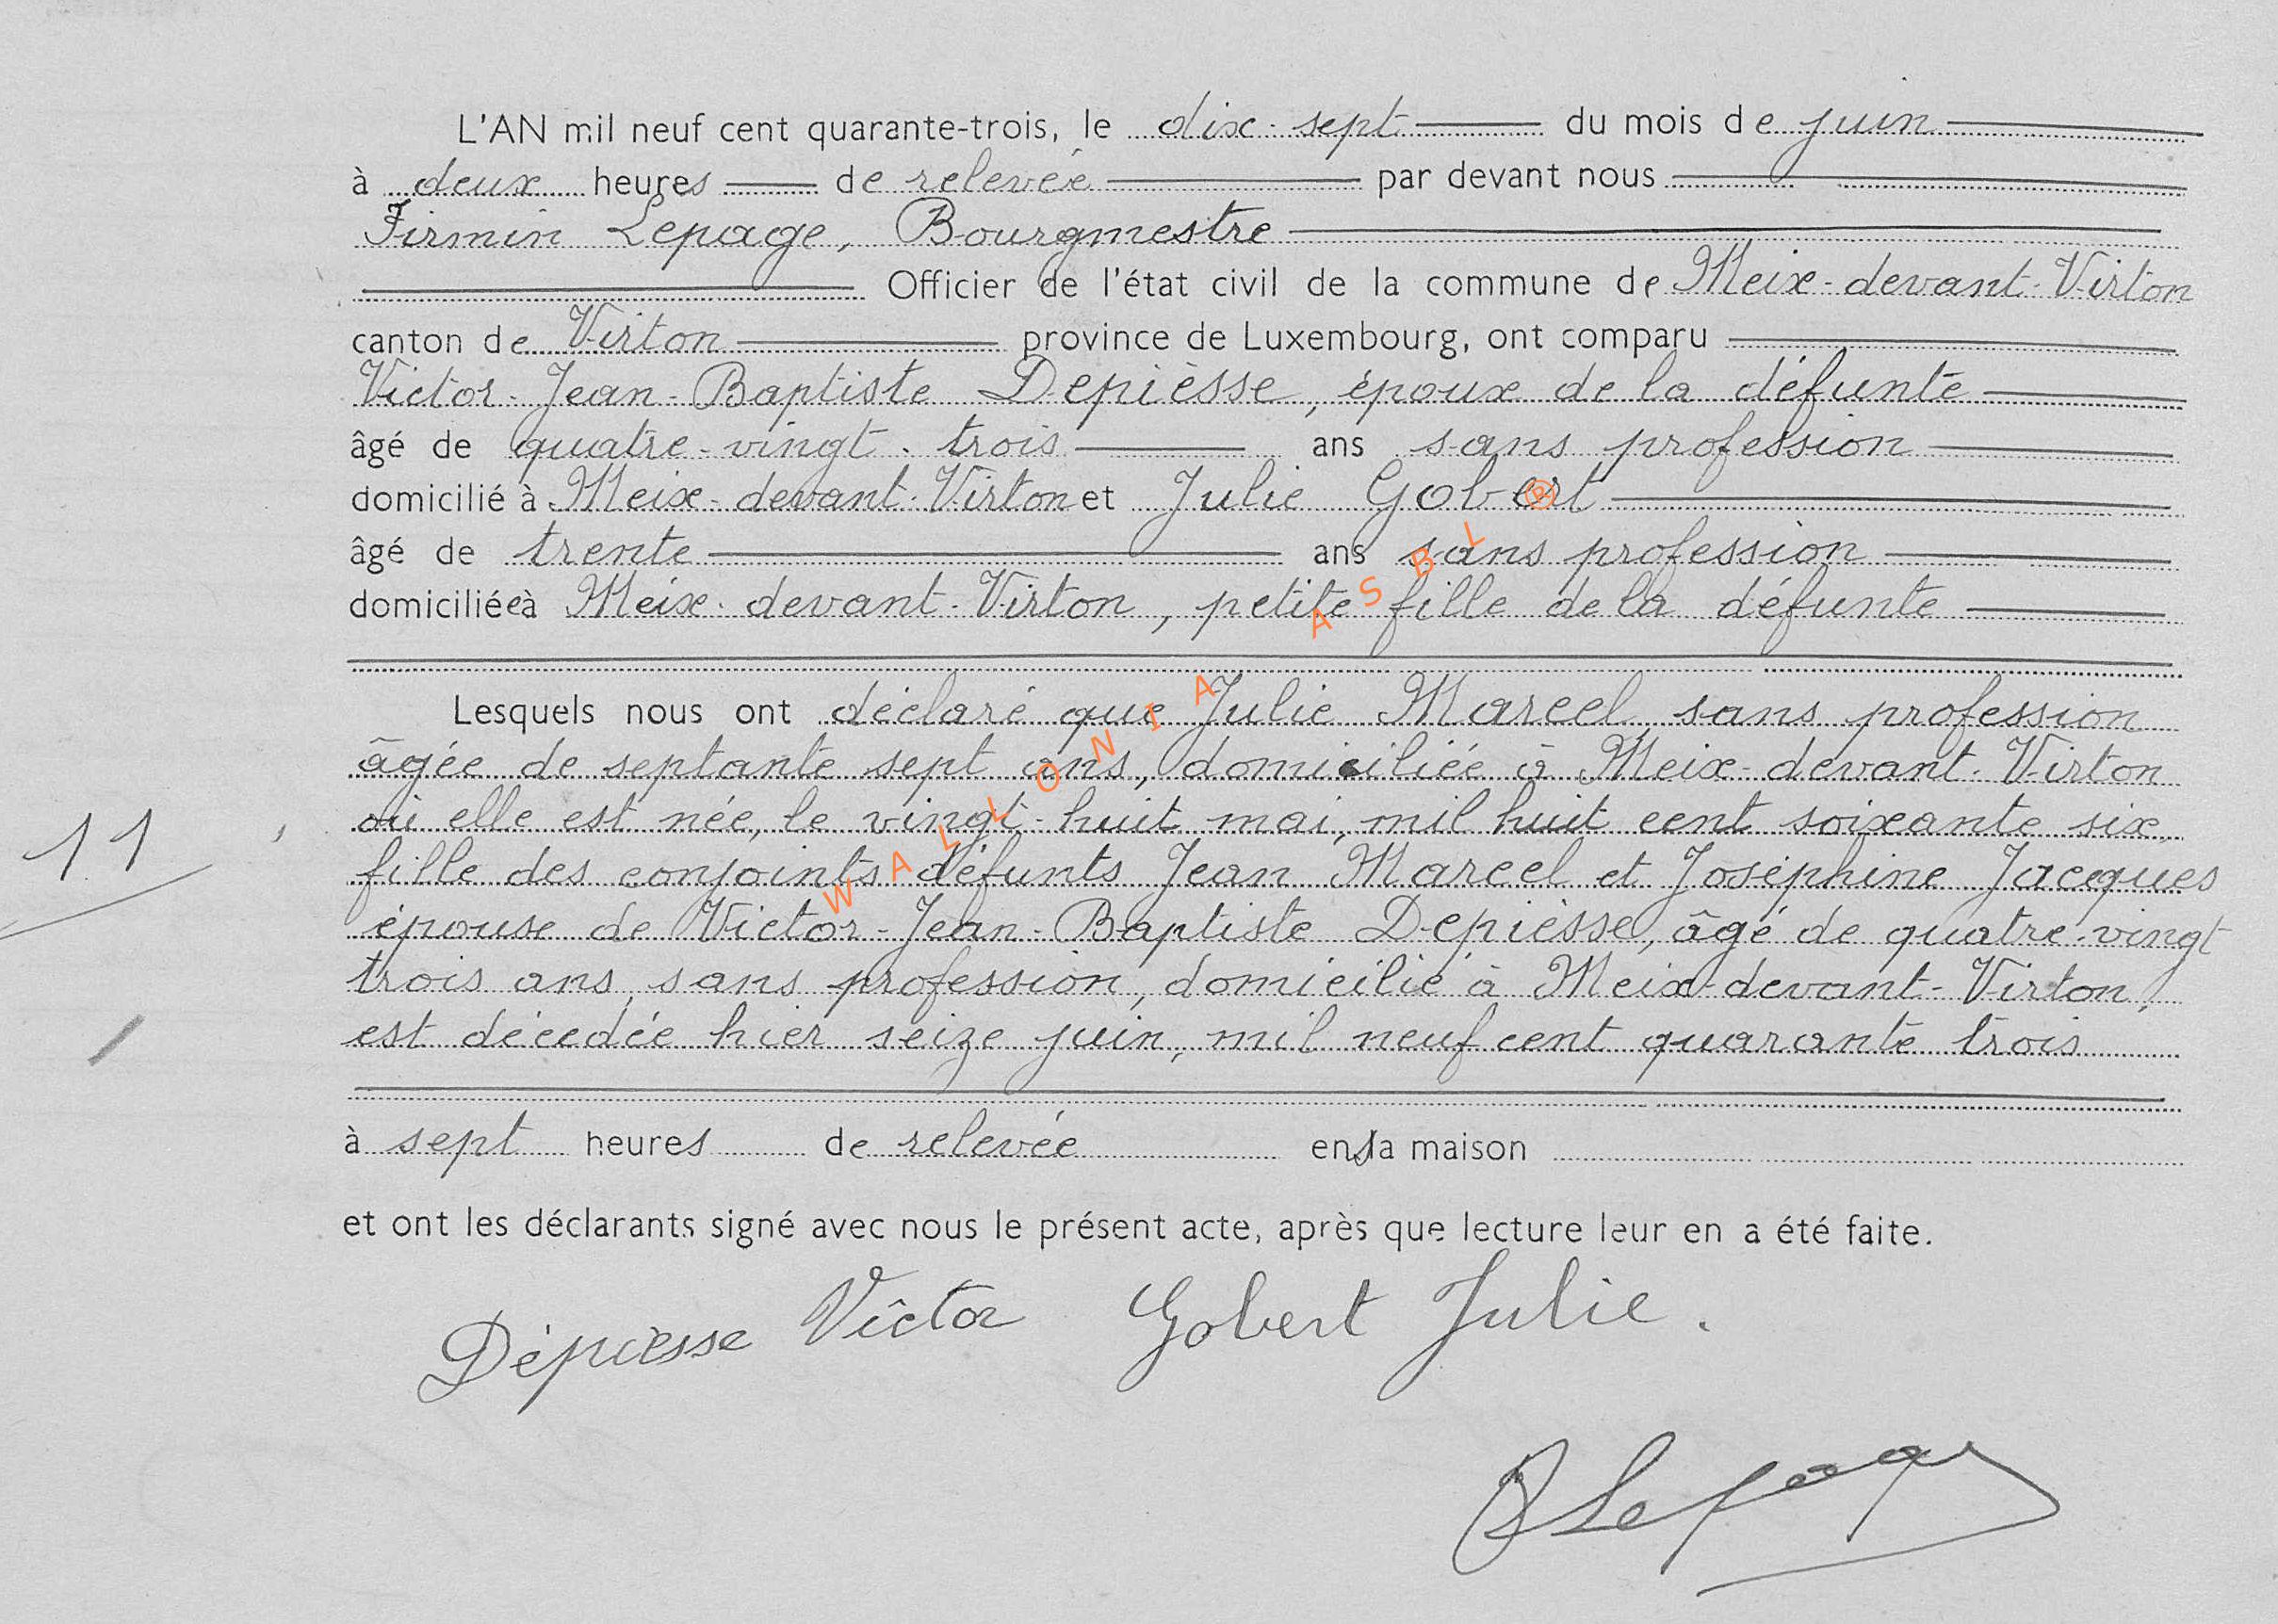 L'AN mil neuf cent quarante-trois, le dix-sept du mois de juin
à deux heures de relevée par devant nous
Firmin Lepage, Bourgmestre
Officier de l'état civil de la commune de Meix-devant-Virton
canton de Virton province de Luxembourg, ont comparu
Victor-Jean-Baptiste Depièsse, époux de la défunte
âgé de quatre-vingt-trois ans sans profession
domicilié à Meix-devant-Virton et Julie Gobert
âgé de trente ans sans profession
domiciliée à Meix-devant-Virton, petite fille de la défunte
Lesquels nous ont déclaré que Julie Marcel, sans profession
âgée de septante sept ans, domiciliée à Meix-devant-Virton
où elle est née, le vingt-huit mai, mil huit cent soixante six,
11
fille des conjoints défunts Jean Marcel et Joséphine Jacques
épouse de Victor-Jean-Baptiste Depièsse, âgé de quatre-vingt
trois ans, sans profession, domicilié à Meix-devant-Virton,
est décédée hier seize juin, mil neuf cent quarante trois
à sept heures de relevée en sa maison
et ont les déclarants signé avec nous le présent acte, après que lecture leur en a été faite.
Dépiesse Victor Gobert Julie.
Lepage
WALLONIA ASBL ®